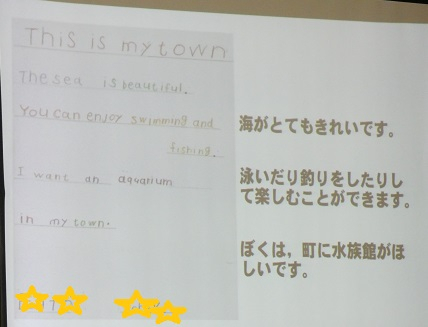 This is my town
The sea is beautiful.
You can enjoy swimming and
fishing.
I want an aquarium
in my town.
海がとてもきれいです。
泳いだり釣りをしたりし
て楽しむことができます。
ぼくは，町に水族館がほ
しいです。